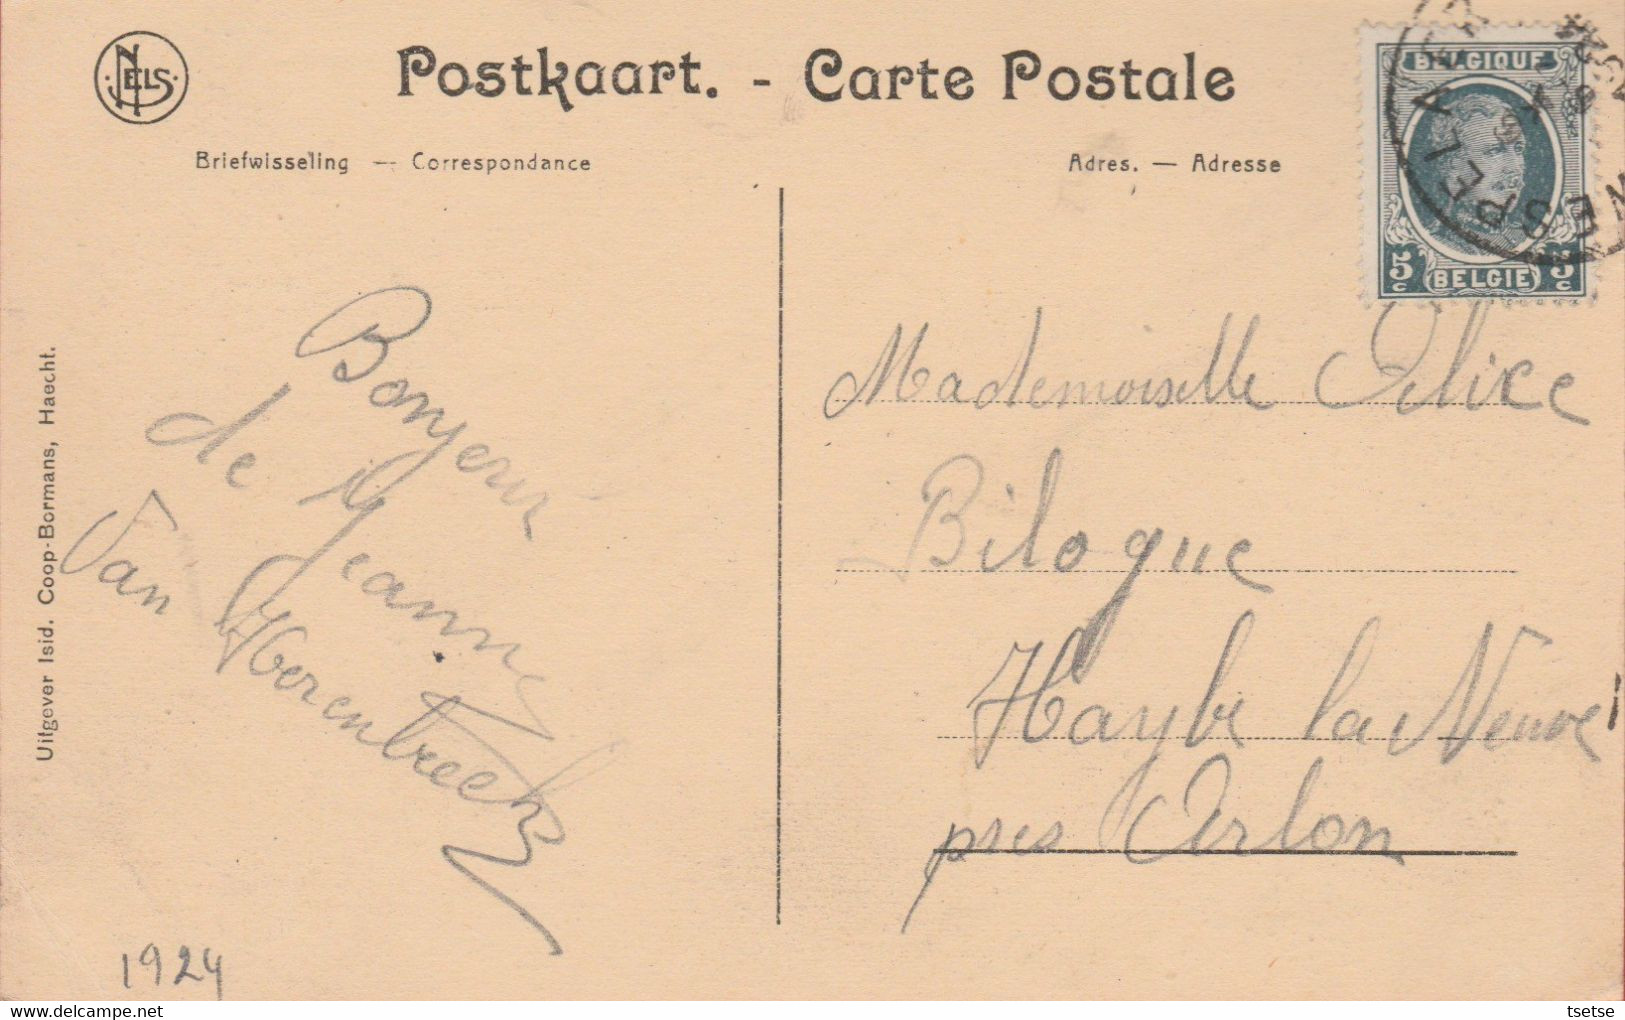 NELS
Postkaart. - Carte Postale
Briefwisseling — Correspondance
Adres. — Adresse
BELGIQUE
5c BELGIE 5c
Uitgever Isid. Coop-Bormans, Haecht.
Bonjour
de Jeanne
Van Herenbreek
1924
Mademoiselle Alice
Bilogue
Haybe la Neuve
près Arlon
tsetse